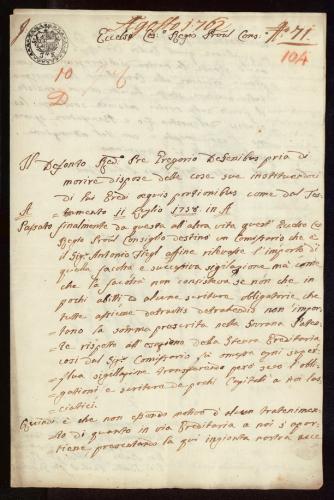 Agosto 1762
Eccelso Ces.º Regio Provˡ Cons.º
Nº 71
104
10
D
6
Il Defonto Red.º Pre Gregorio Defenibus pria di
morire dispose delle cose sue instituendoci
di lui Eredi æquis portionibus come dal Tes-
A tamento 11 Luglio 1758 in A
Passato finalmente da questa all'altra vita quest' Eccelso Ces.º
Regio Provˡ Consiglio destinò un Comissario che è
il Sigʳ Antonio affine rilevasse l'importo di
quella facoltà e successiva sigilazione mà come
che la facoltà non consisteva se non che in
pochi abiti ed alcune scriture obligatorie, che
tutte assieme detractis detrahendis non impor-
tono la somma prescritta nella Sovrana Paten-
te rispetto all' della Steura Ereditaria
così dal Sigʳ Comissario fù omessa ogni super-
flua sigillazione transferendo però seco l'obli-
gationi e scriture de pochi Capitali a noi las-
ciatici.
Quindi è che non essendo motivo d'alcun tratenimen-
to di quanto in via Ereditaria a noi s'apar-
tiene, presentando la qui ingionta nostra